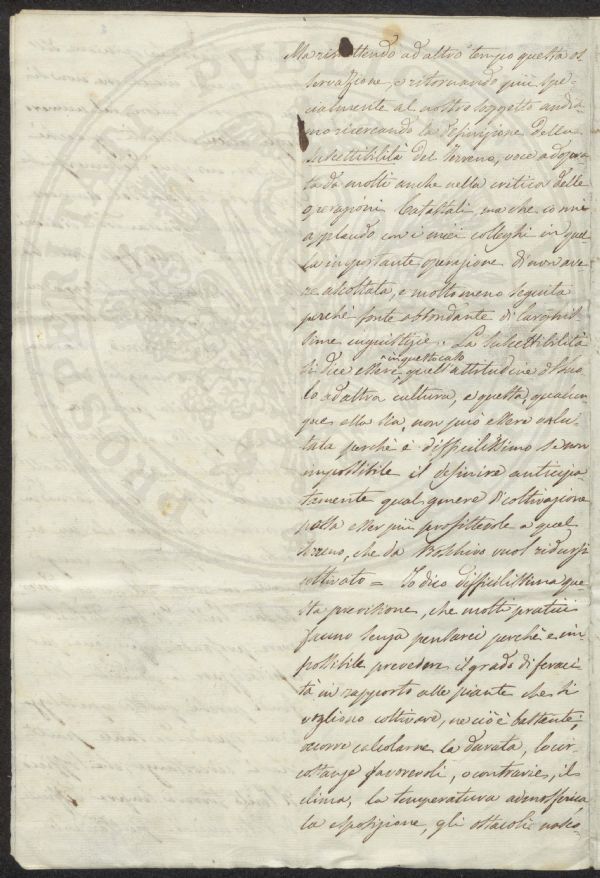 Ma rimettendo ad altro tempo questa os
servazione, e ritornando più spe-
cialmente al nostro soggetto andia-
mo ricercando la definizione della
Suscettibilità del Terreno, voce adopra
ta da molti anche nella critica delle
operazioni Catastali, ma che io mi
applaudo con i miei colleghi in quel
la importante operazione di non ave
re ascoltata, e molto meno seguita
perchè fonte abbondante di larghis
sime ingiustizie. La Suscettibilità
si dice essere in questo caso quell'attitudine del suo
lo ad altra cultura, e questa, qualun
que ella sia, non può essere valu-
tata perchè è difficilissimo se non
impossibile il definire anticipa-
tamente qual genere di coltivazione
possa esser più profittevole a quel
Terreno, che da Boschivo vuol ridursi
coltivato = Io dico difficilissima que
sta previsione, che molti pratici
fanno senza pensarci perchè è im-
possibile prevedere il grado di feraci
tà in rapporto alle piante che si
vogliono coltivare, ne ciò è bastante;
occorre calcolarne la durata, le cir-
costanze favorevoli, o contrarie, il
clima, la temperatura atmosferica,
la esposizione, gli ostacoli nasco-
PROSPERITAS PUBL